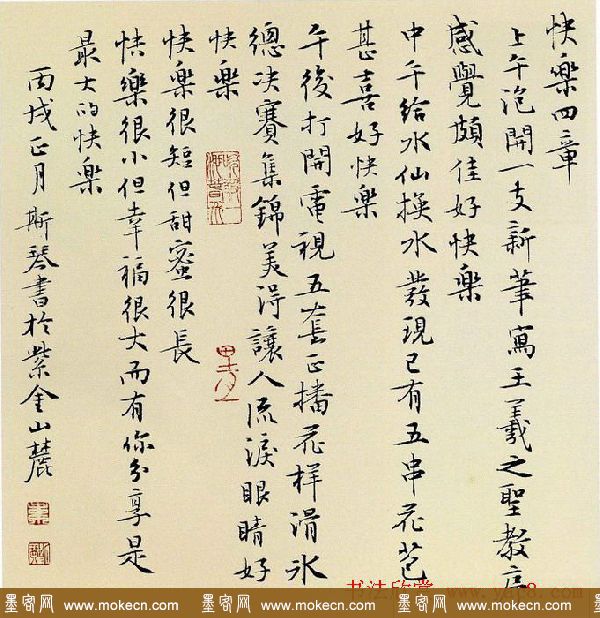 快樂四章
上午泡開一支新筆寫王羲之聖教序
感覺頗佳好快樂
中午給水仙换水發現已有五串花苞
甚喜好快樂
午後打開電視五套正播花样滑冰
總决賽集錦美得讓人流淚眼睛好
快樂
快樂很短但甜蜜很長
快樂很小但幸福很大而有你分享是
最大的快樂
丙戌正月斯琴書於紫金山麓
书法欣赏 www.yac8.com
墨客网 www.mokecn.com 墨客网 www.mokecn.com 墨客网 www.mokecn.com